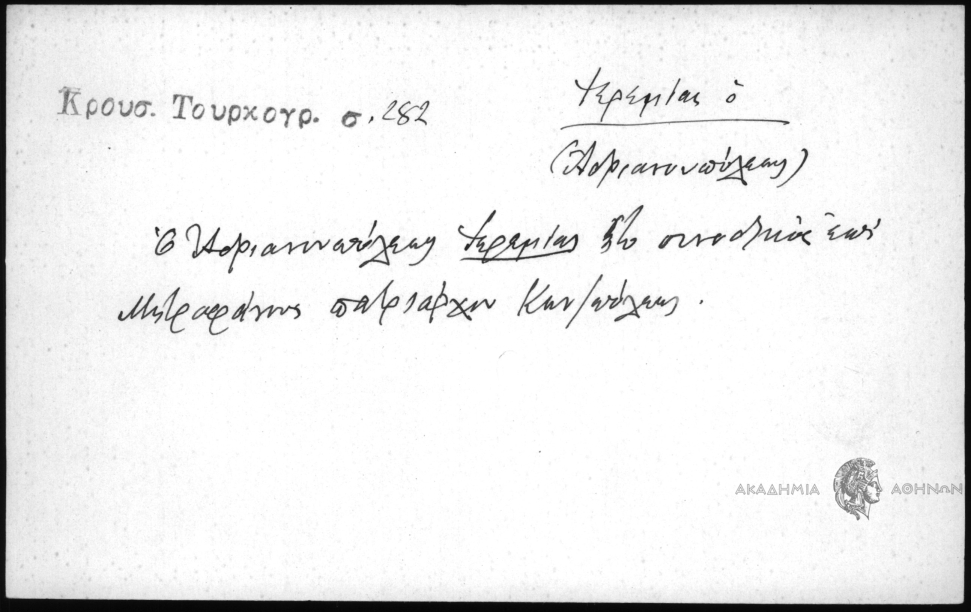 Κρουσ. Τουρκογρ. σ. 282
Ἱερεμίας ὁ
(Ἀδριανουπόλεως)
Ὁ Ἀδριανουπόλεως Ἱερεμίας ἦτο συνοδικὸς ἐπὶ
Μητροφάνους πατριάρχου Κων/πόλεως.
ΑΚΑΔΗΜΙΑ ΑΘΗΝΩΝ